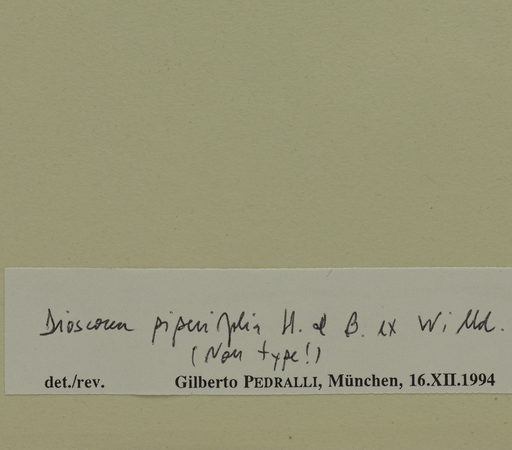 Dioscorea piperifolia H. & B. ex Willd.
(Non type!)
det./rev. Gilberto PEDRALLI, München, 16.XII.1994